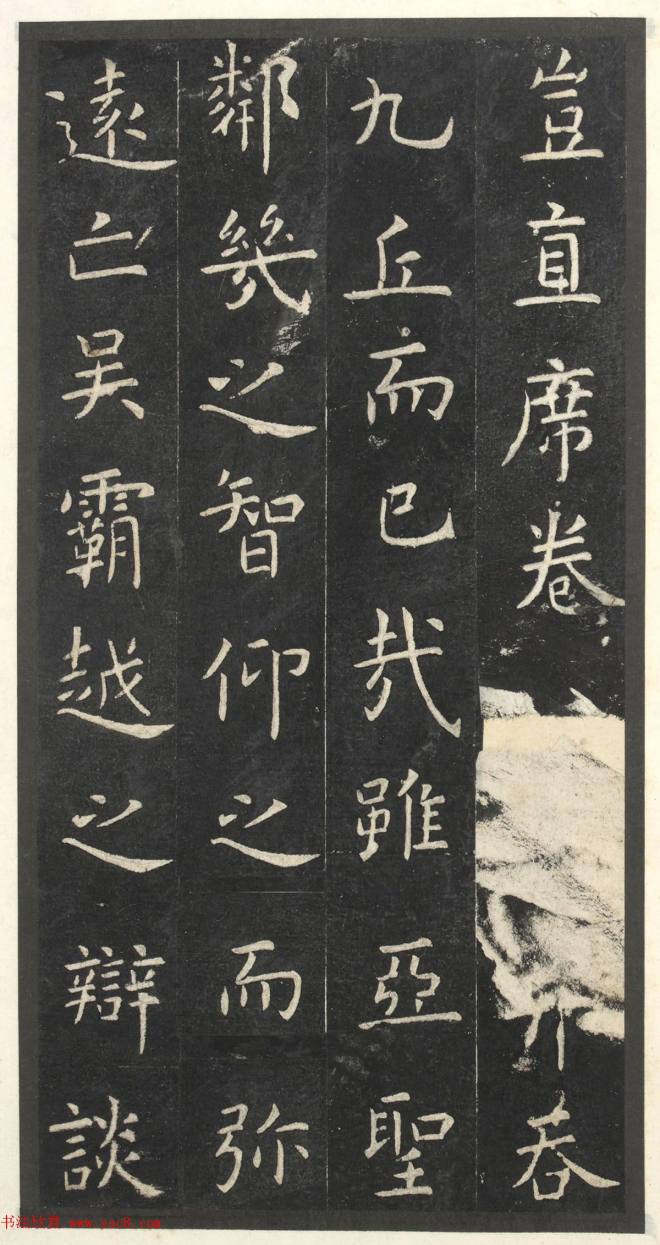 豈直席卷吞
九丘而已哉雖亞聖
鄰幾之智仰之而弥
遠亡吴霸越之辯談
书法欣赏 www.yac8.com